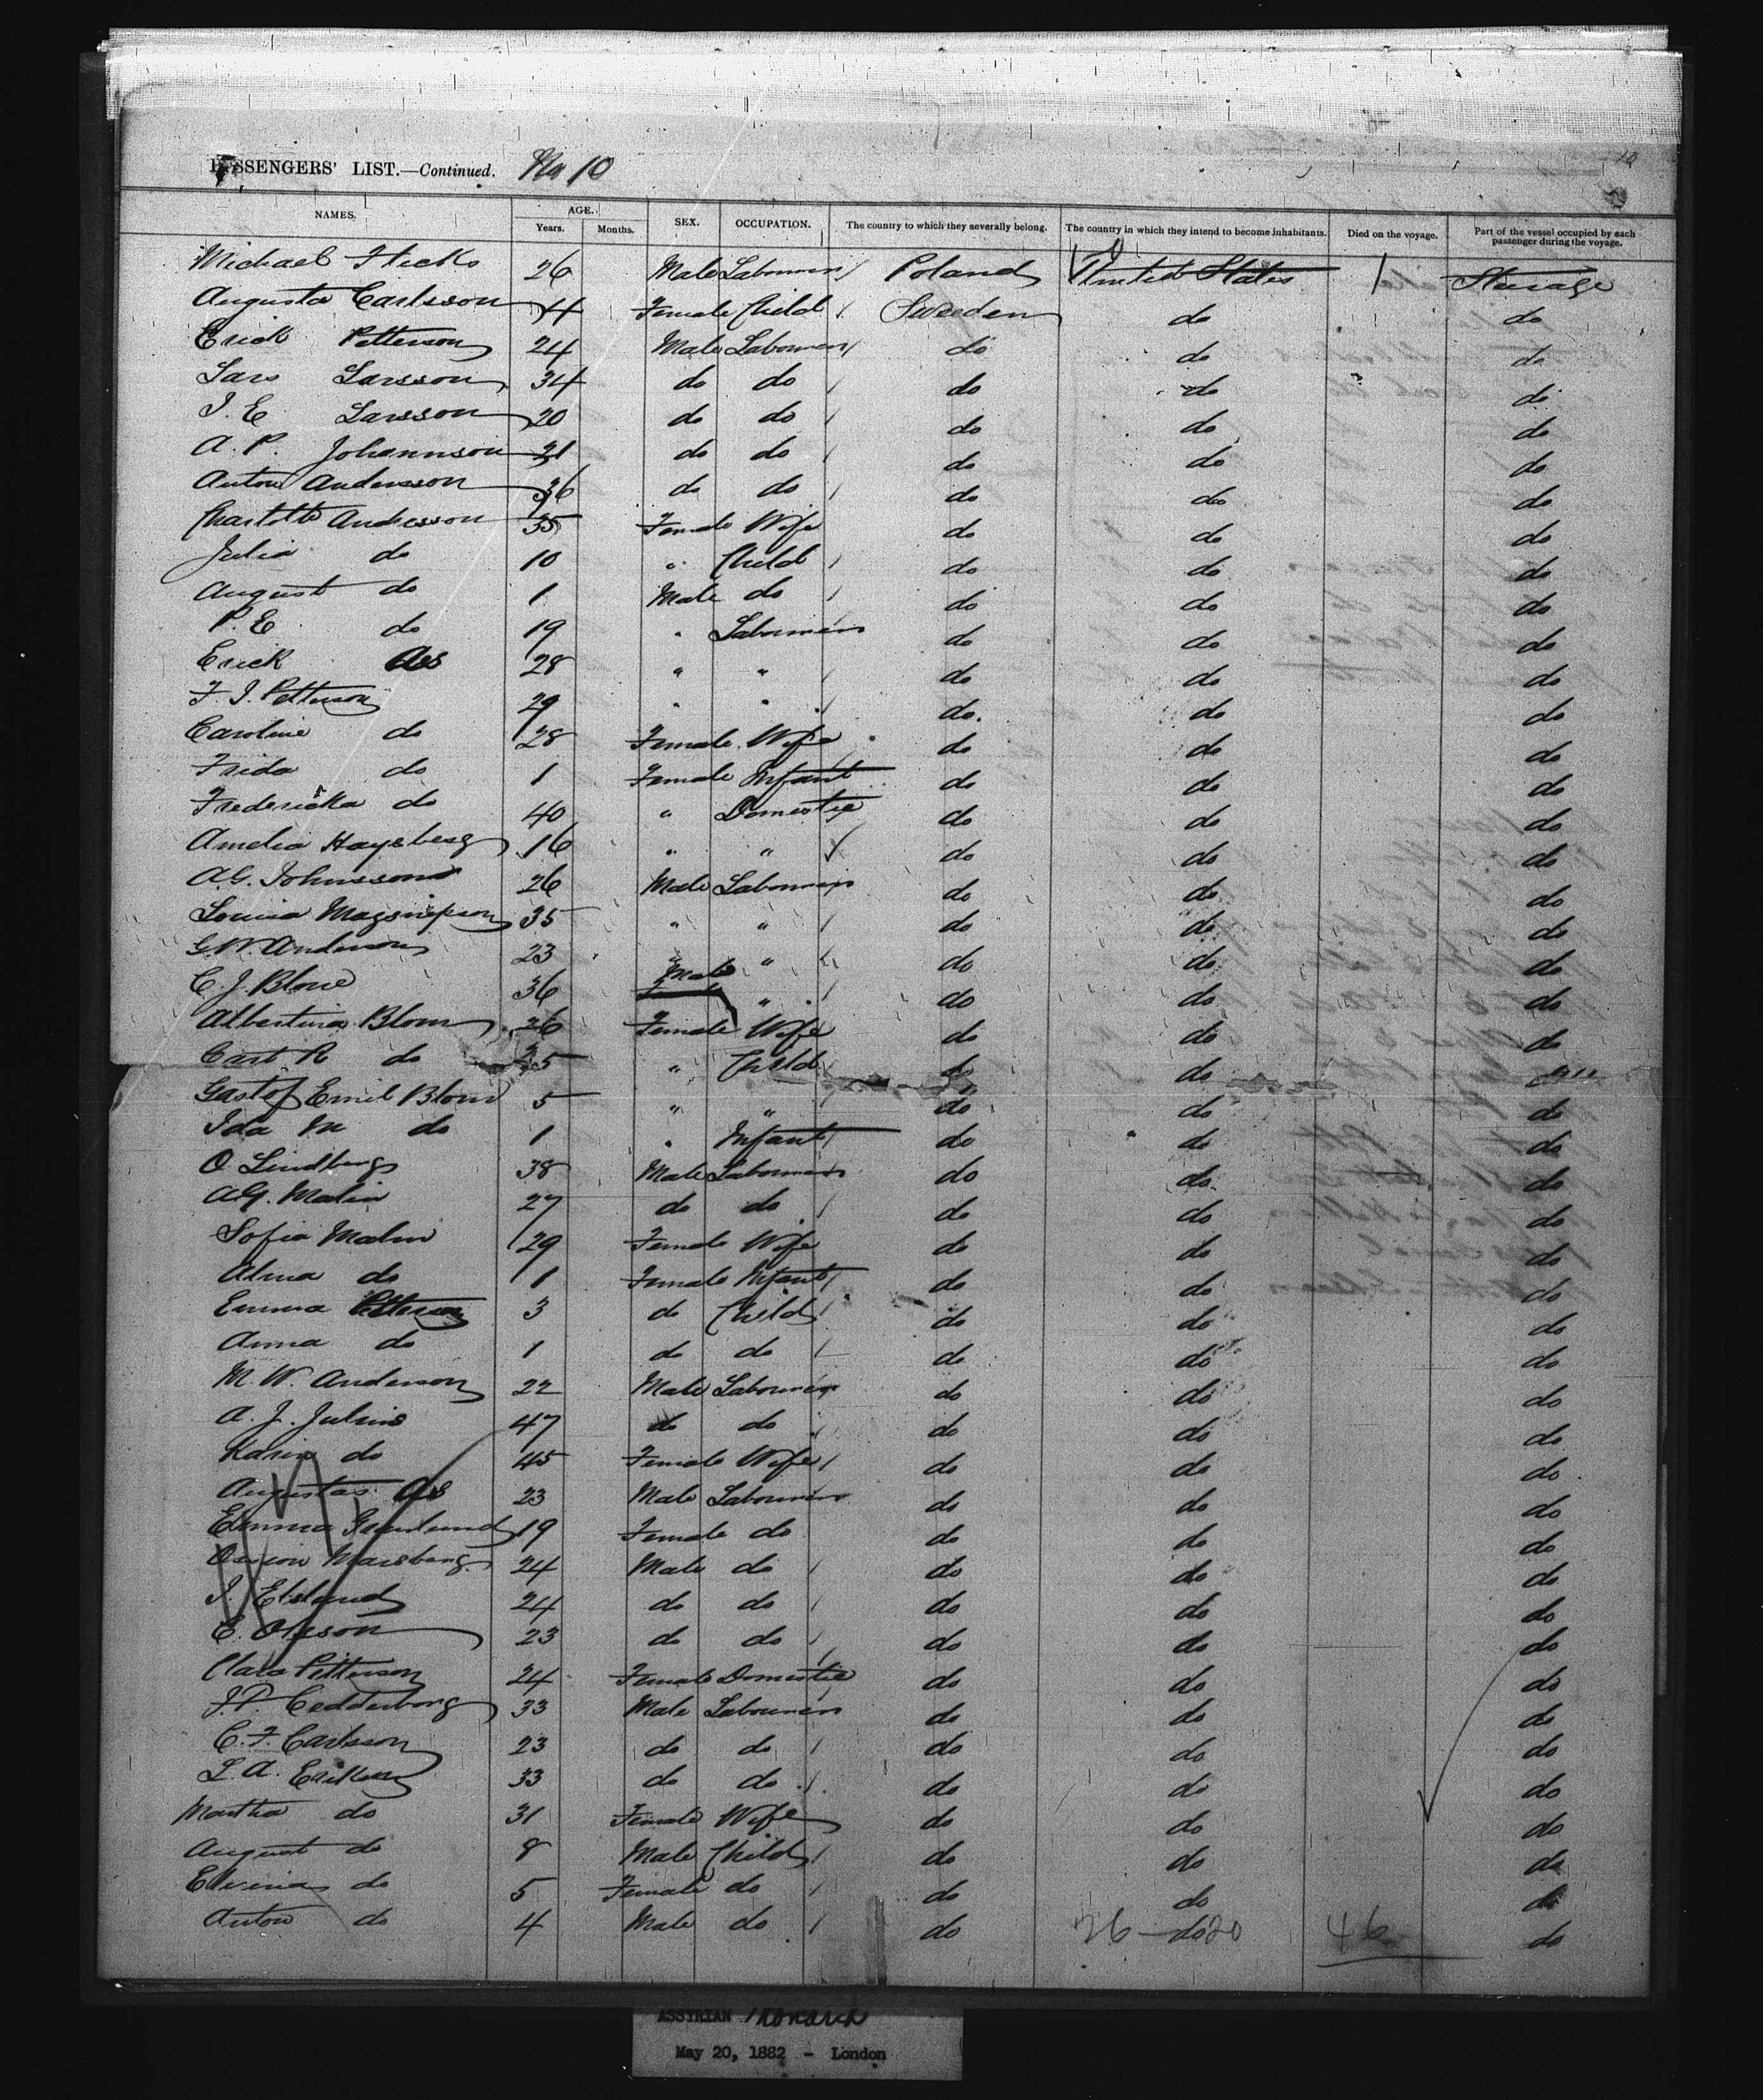 PASSENGERS' LIST.—Continued. No 10
NAMES. AGE. Years. Months. SEX. OCCUPATION. The country to which they severally belong. The country in which they intend to become inhabitants. Died on the voyage. Part of the vessel occupied by each passenger during the voyage.
Michael 26 Male Labourer Poland United States Steerage
Augusta Carlsson 4 Female Child Sweden do do
Erick Petterson 24 Male Labourer do do do
Lars Larsson 34 do do do do do
I. E Larsson 20 do do do do do
A. P. Johannson 21 do do do do do
Anton Andersson 36 do do do do do
Charlotte Andersson 35 Female Wife do do do
Julia do 10 " Child do do do
August do 1 Male do do do do
P. E do 19 " Labourer do do do
Erick do 28 " " do do do
F. I. Petterson 29 " " do. do do
Caroline do 28 Female Wife do do do
Frida do 1 Female Infant do do do
Fredericka do 40 " Domestic do do do
Amelia Haysberg 16 " " do do do
A.G. Johnsson 26 Male Labourer do do do
Louisa 35 " " do do do
G. W. Anderson 23 " " do do do
C. J. Blom 36 Male " do do do
Albertina Blom 26 Female Wife do do do
Carl R do 5 " Child do do
Gustof Emil Blom 5 " " do do do
Ida M do 1 " Infant do do do
O Lindberg 38 Male Labourer do do do
A.G. Malin 27 do do do do do
Sofia Malm 29 Female Wife do do do
Alma do 1 Female Infant do do do
Emma Petterson 3 do Child do do do
Anna do 1 do do do do do
M. W. Anderson 22 Male Labourer do do do
A. J. Julius 47 do do do do do
Karin do 45 Female Wife do do do
Augustas do 23 Male Labourer do do do
Emma 19 Female do do do do
24 Male do do do do
I. 24 do do do do do
E. Olsson 23 do do do do do
Clara Petterson 24 Female Domestic do do do
J. P. Cedderborg 33 Male Labourer do do do
C. F. Carlsson 23 do do do do do
L. A. 33 do do do do do
Martha do 31 Female Wife do do do
August do 8 Male Child do do do
do 5 Female do do do do
Anton do 4 Male do do do do
26 20 46
ASSYRIAN Monarch
May 20, 1882 - London